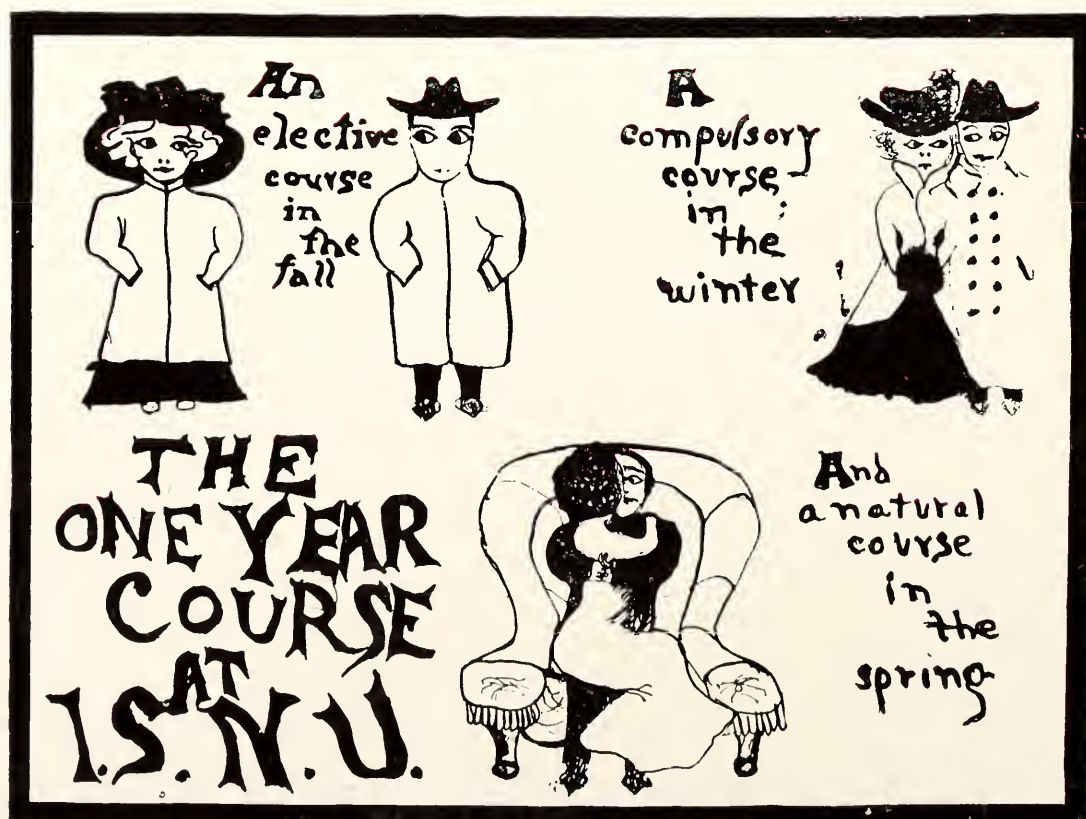 An
elective
course
in
the
fall
A
compulsory
course
in
the
winter
THE
ONE YEAR
COURSE
AT
I.S.N.U.
And
a natural
course
in
the
spring